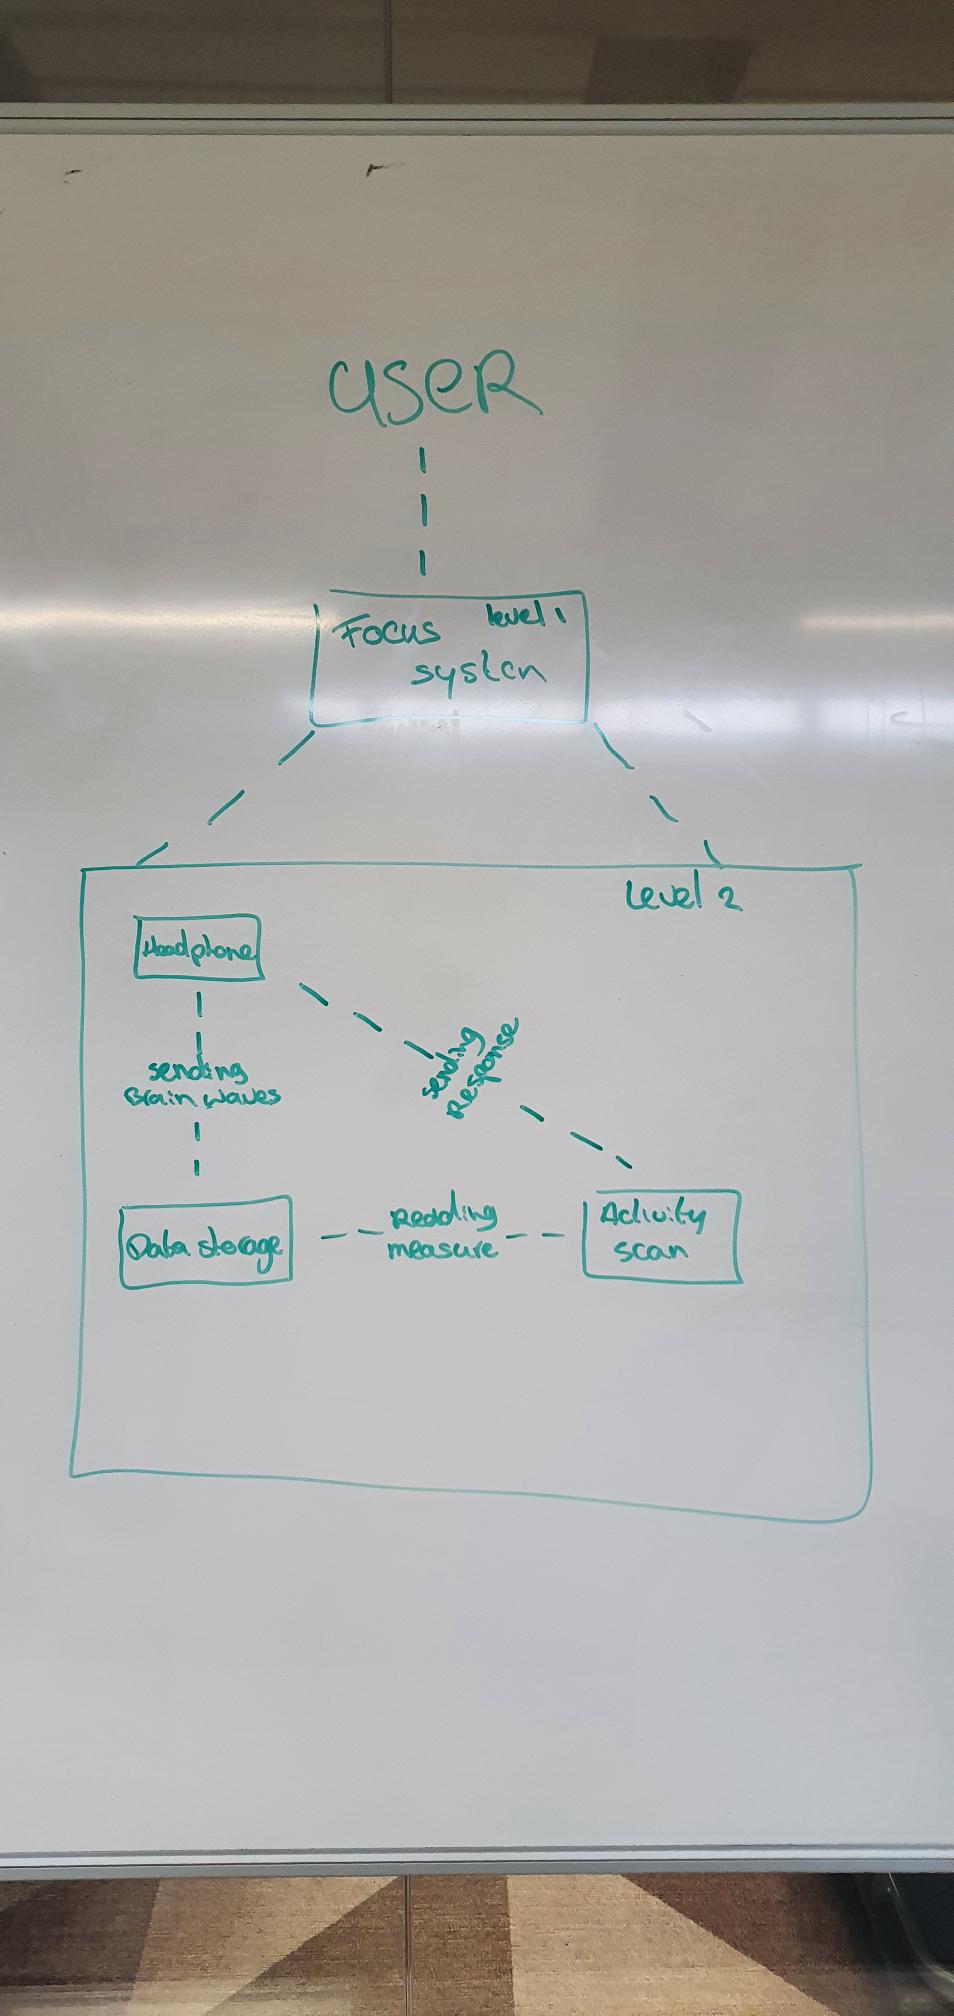 USER
Focus level 1
system
Level 2
Headphone
sending
Brain waves
sending
Response
Data storage
Reading
measure
Activity
scan